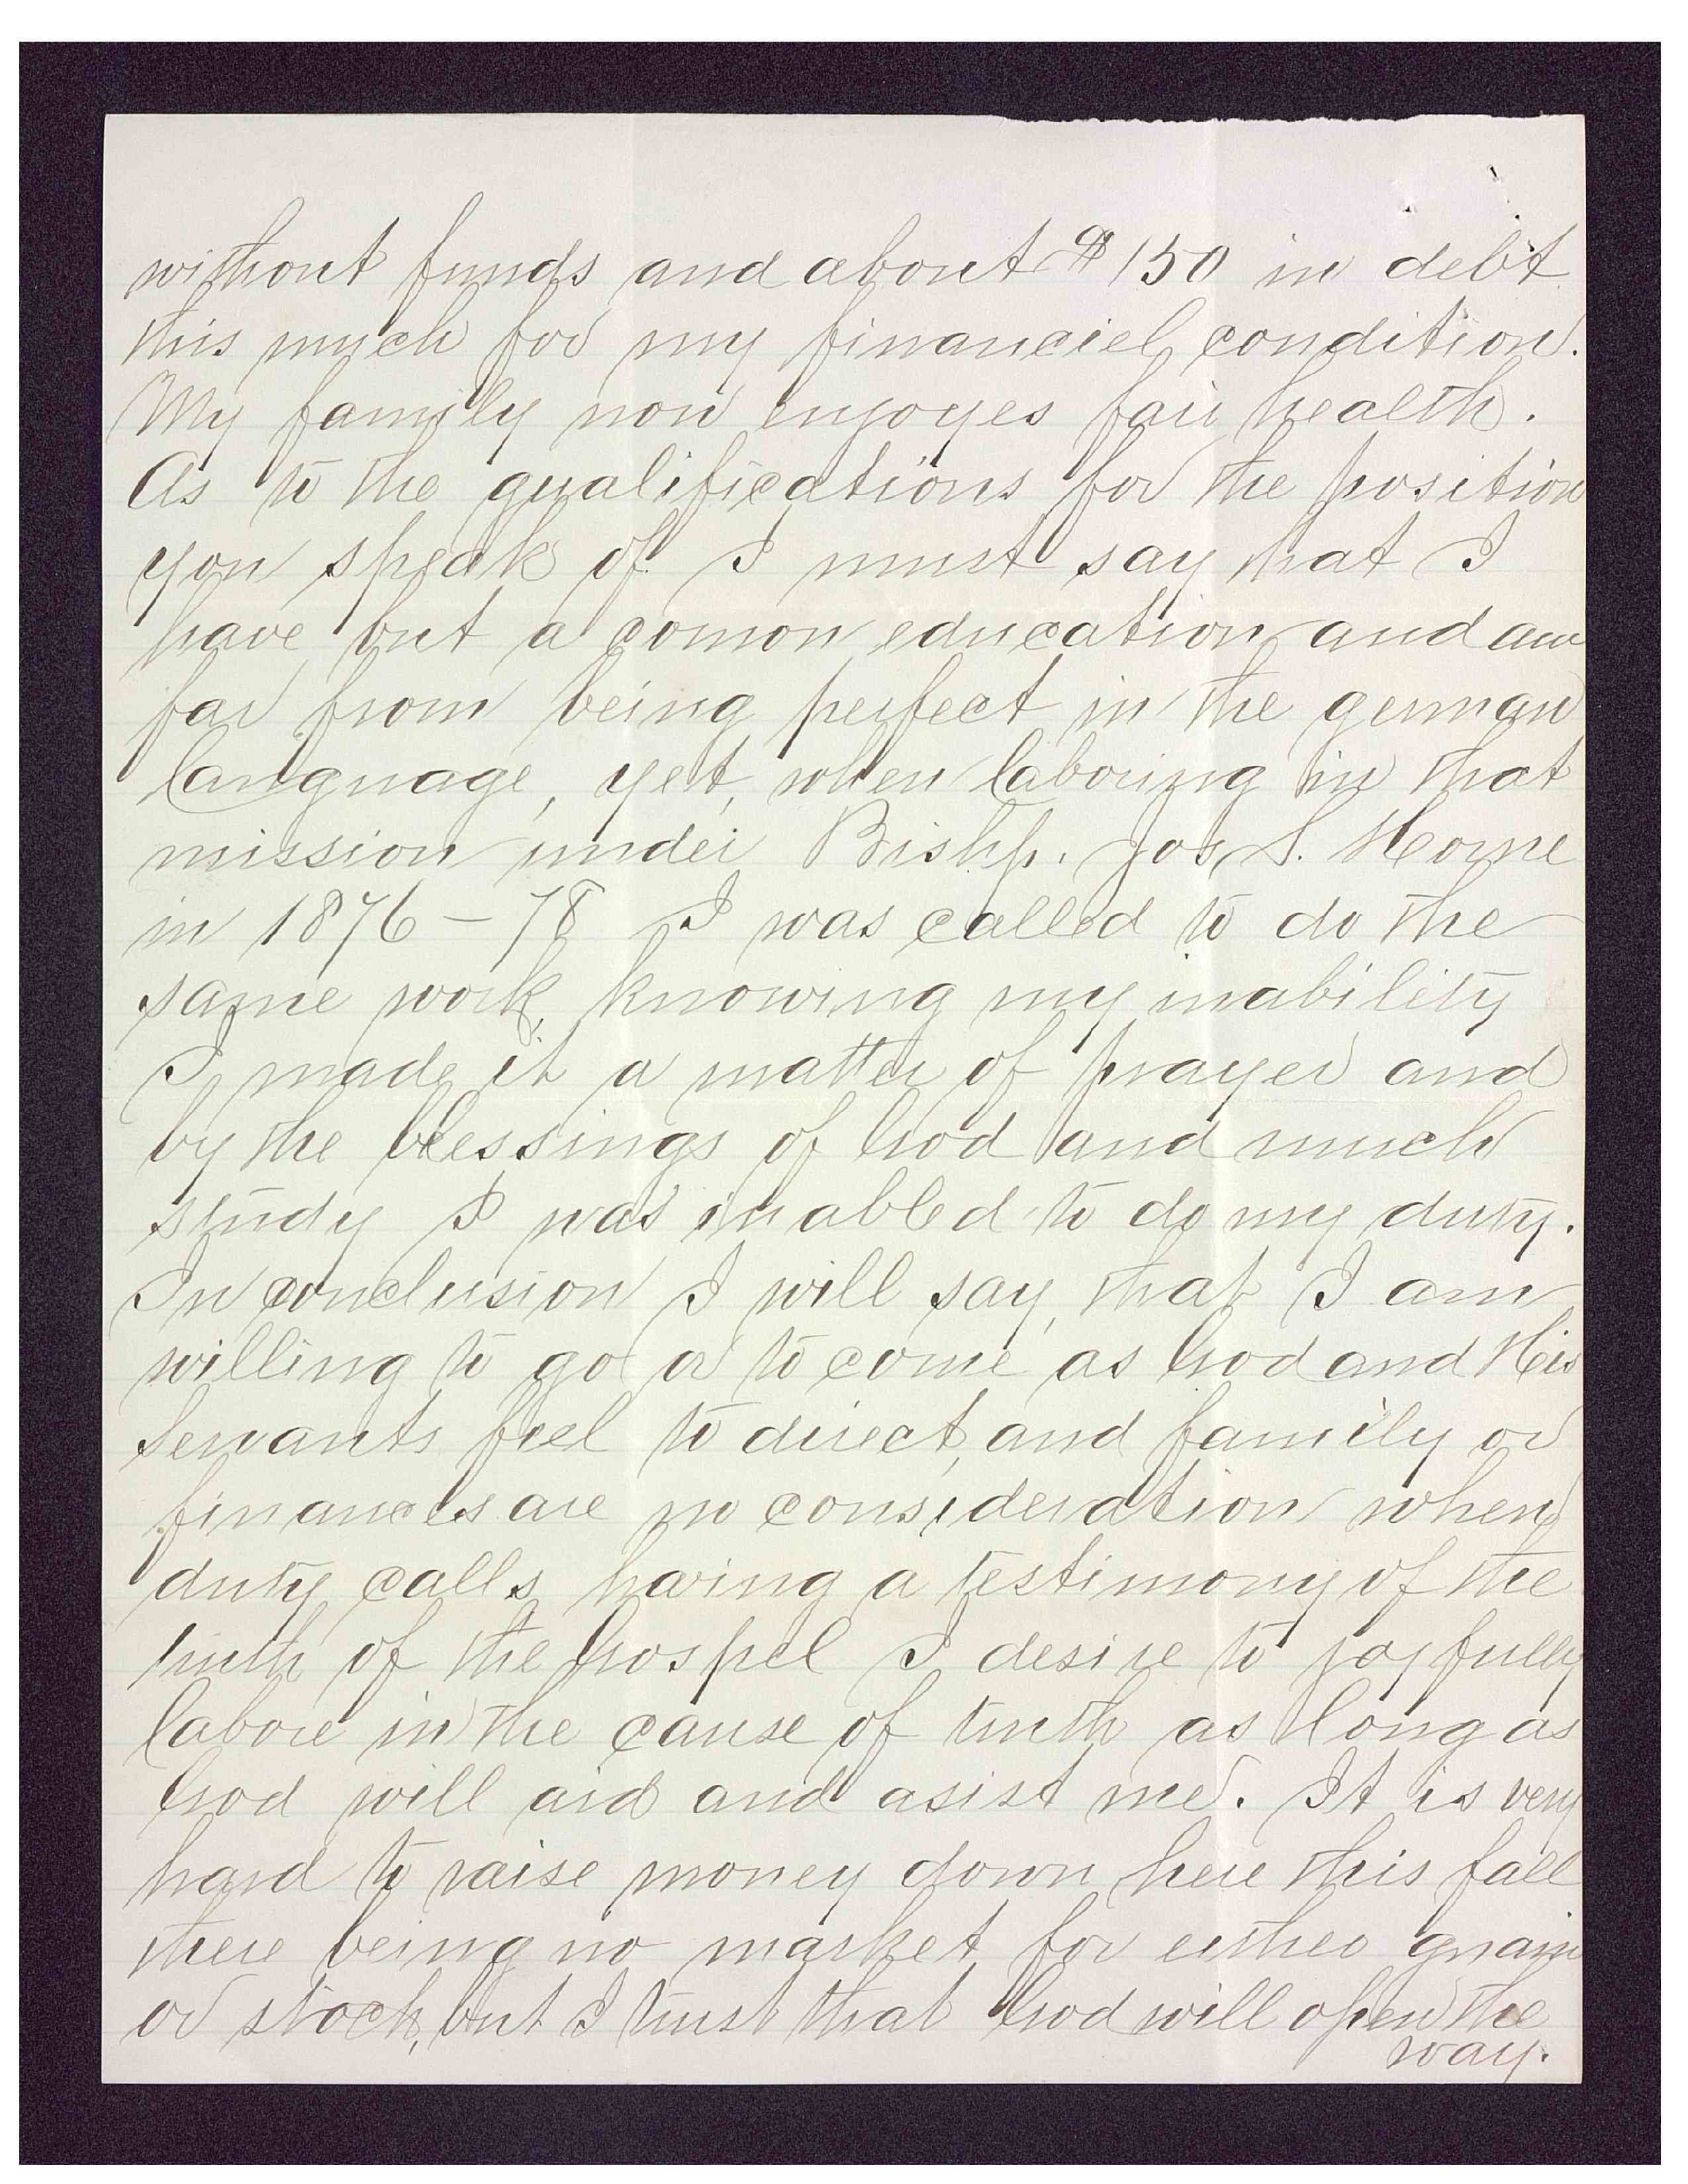 without funds and about $150 in debt
this much for my financiel condition.
My family now enjoyes fair health.
As to the qualifications for the position
you speak of I must say that I
have but a comon education and am
far from being perfect in the german
language, yet, when laboring in that
mission under Bishp. Jos. S. Horne
in 1876 - 78 I was called to do the
same work, knowing my inability
I made it a matter of prayer and
by the blessings of God and much
study I was inabled to do my duty.
In conclusion I will say, that I am
willing to go or to come as God and His
Servants feel to direct, and family or
finances are no consideration when
duty calls, having a testimony of the
truth of the Gospel I desire to joyfully
labore in the cause of truth as long as
God will aid and asist me. It is very
hard to raise money down here this fall
there being no market for either grain
or stock, but I trust that God will open the
way.